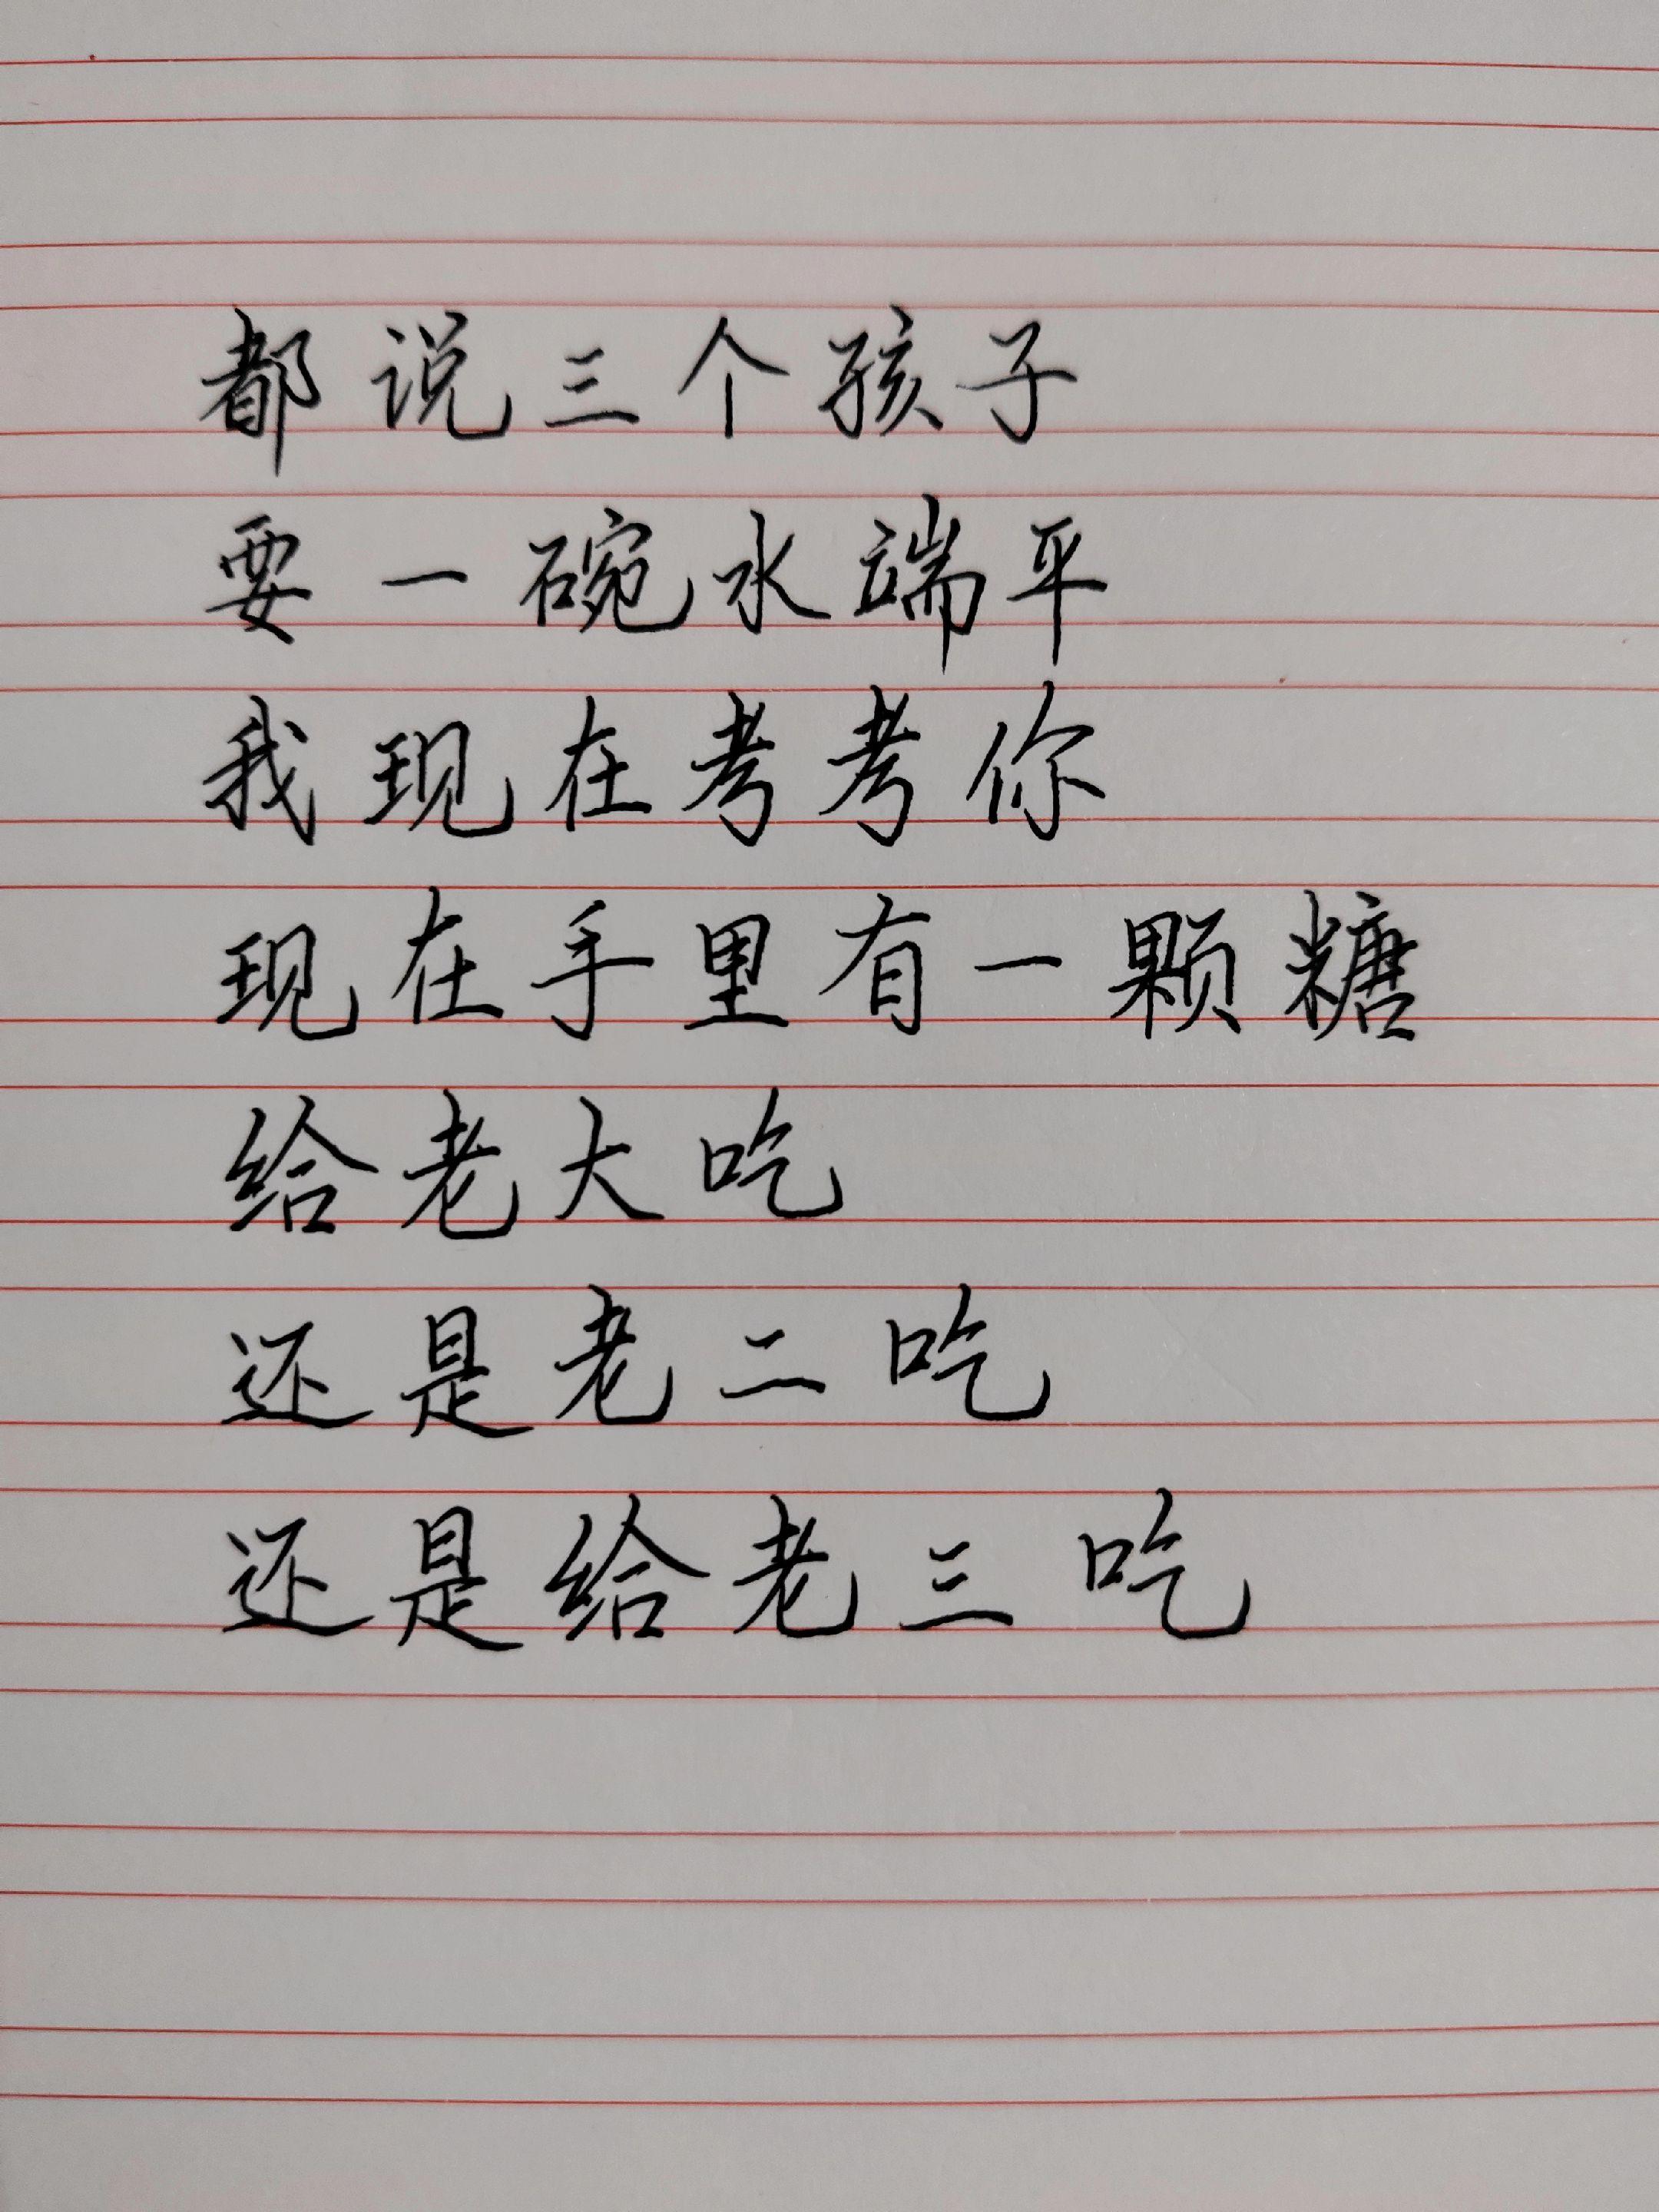 都说三个孩子
要一碗水端平
我现在考考你
现在手里有一颗糖
给老大吃
还是老二吃
还是给老三吃